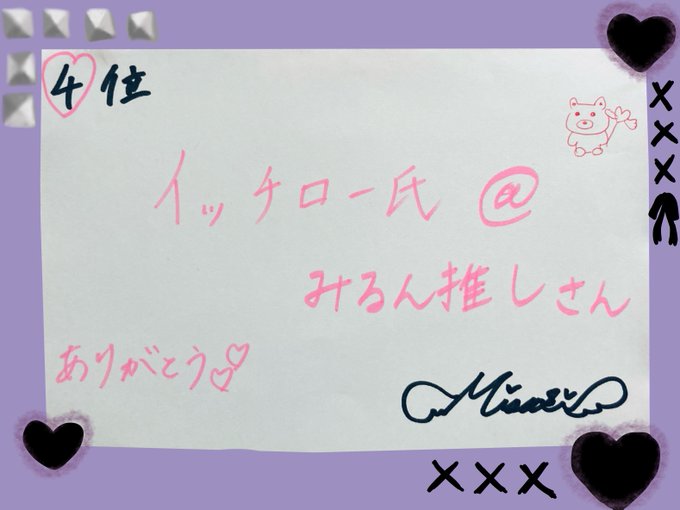 4位
イッチロー氏@
みるん推しさん
ありがとう